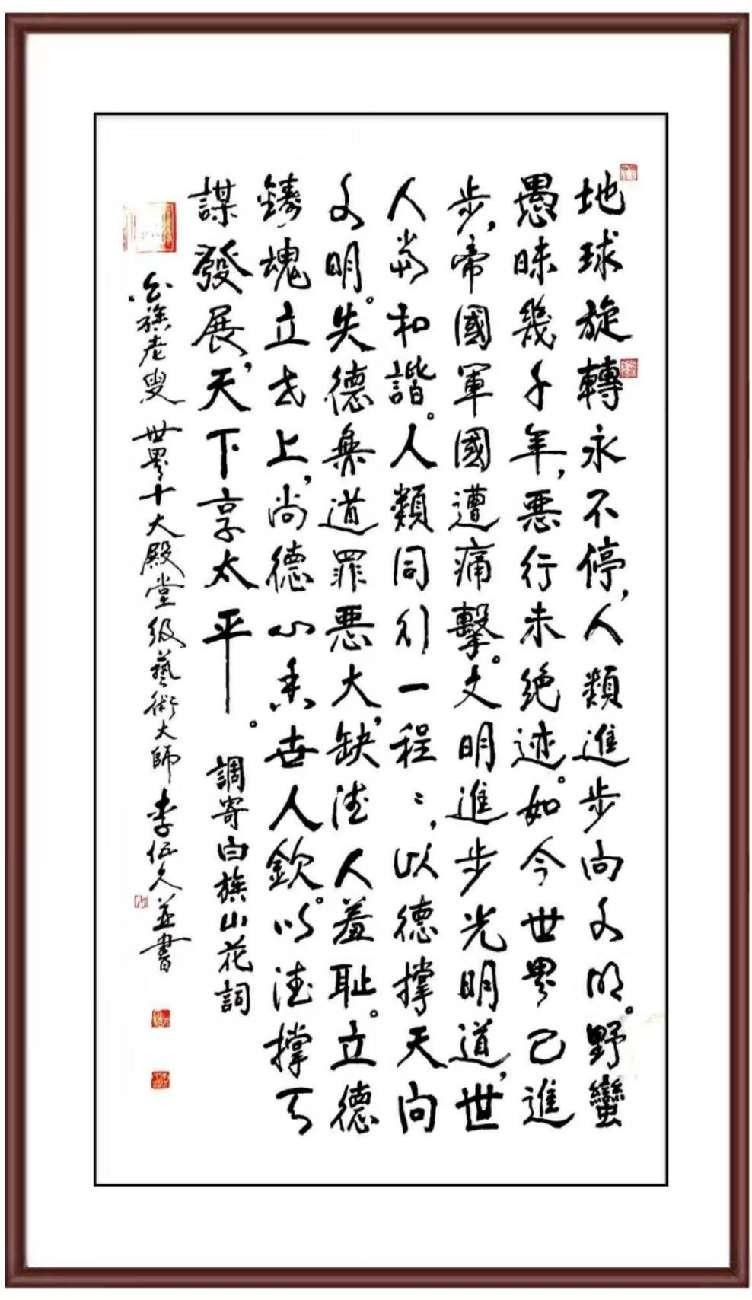 地球旋轉永不停,人類進步向文明。野蠻
愚昧幾千年,悪行未絶迹。如今世界已進
步,帝國軍國遭痛擊。文明進步光明道,世
人和諧。人類同行一程〻,以德撐天向
文明。失德無道罪悪大,缺德人羞恥。立德
鑄魂立世上,尚德心香世人欽。以德撐天
謀發展,天下享太平。
調寄白族山花詞
白族老叟 世界十大殿堂級藝術大師 李伍久並書